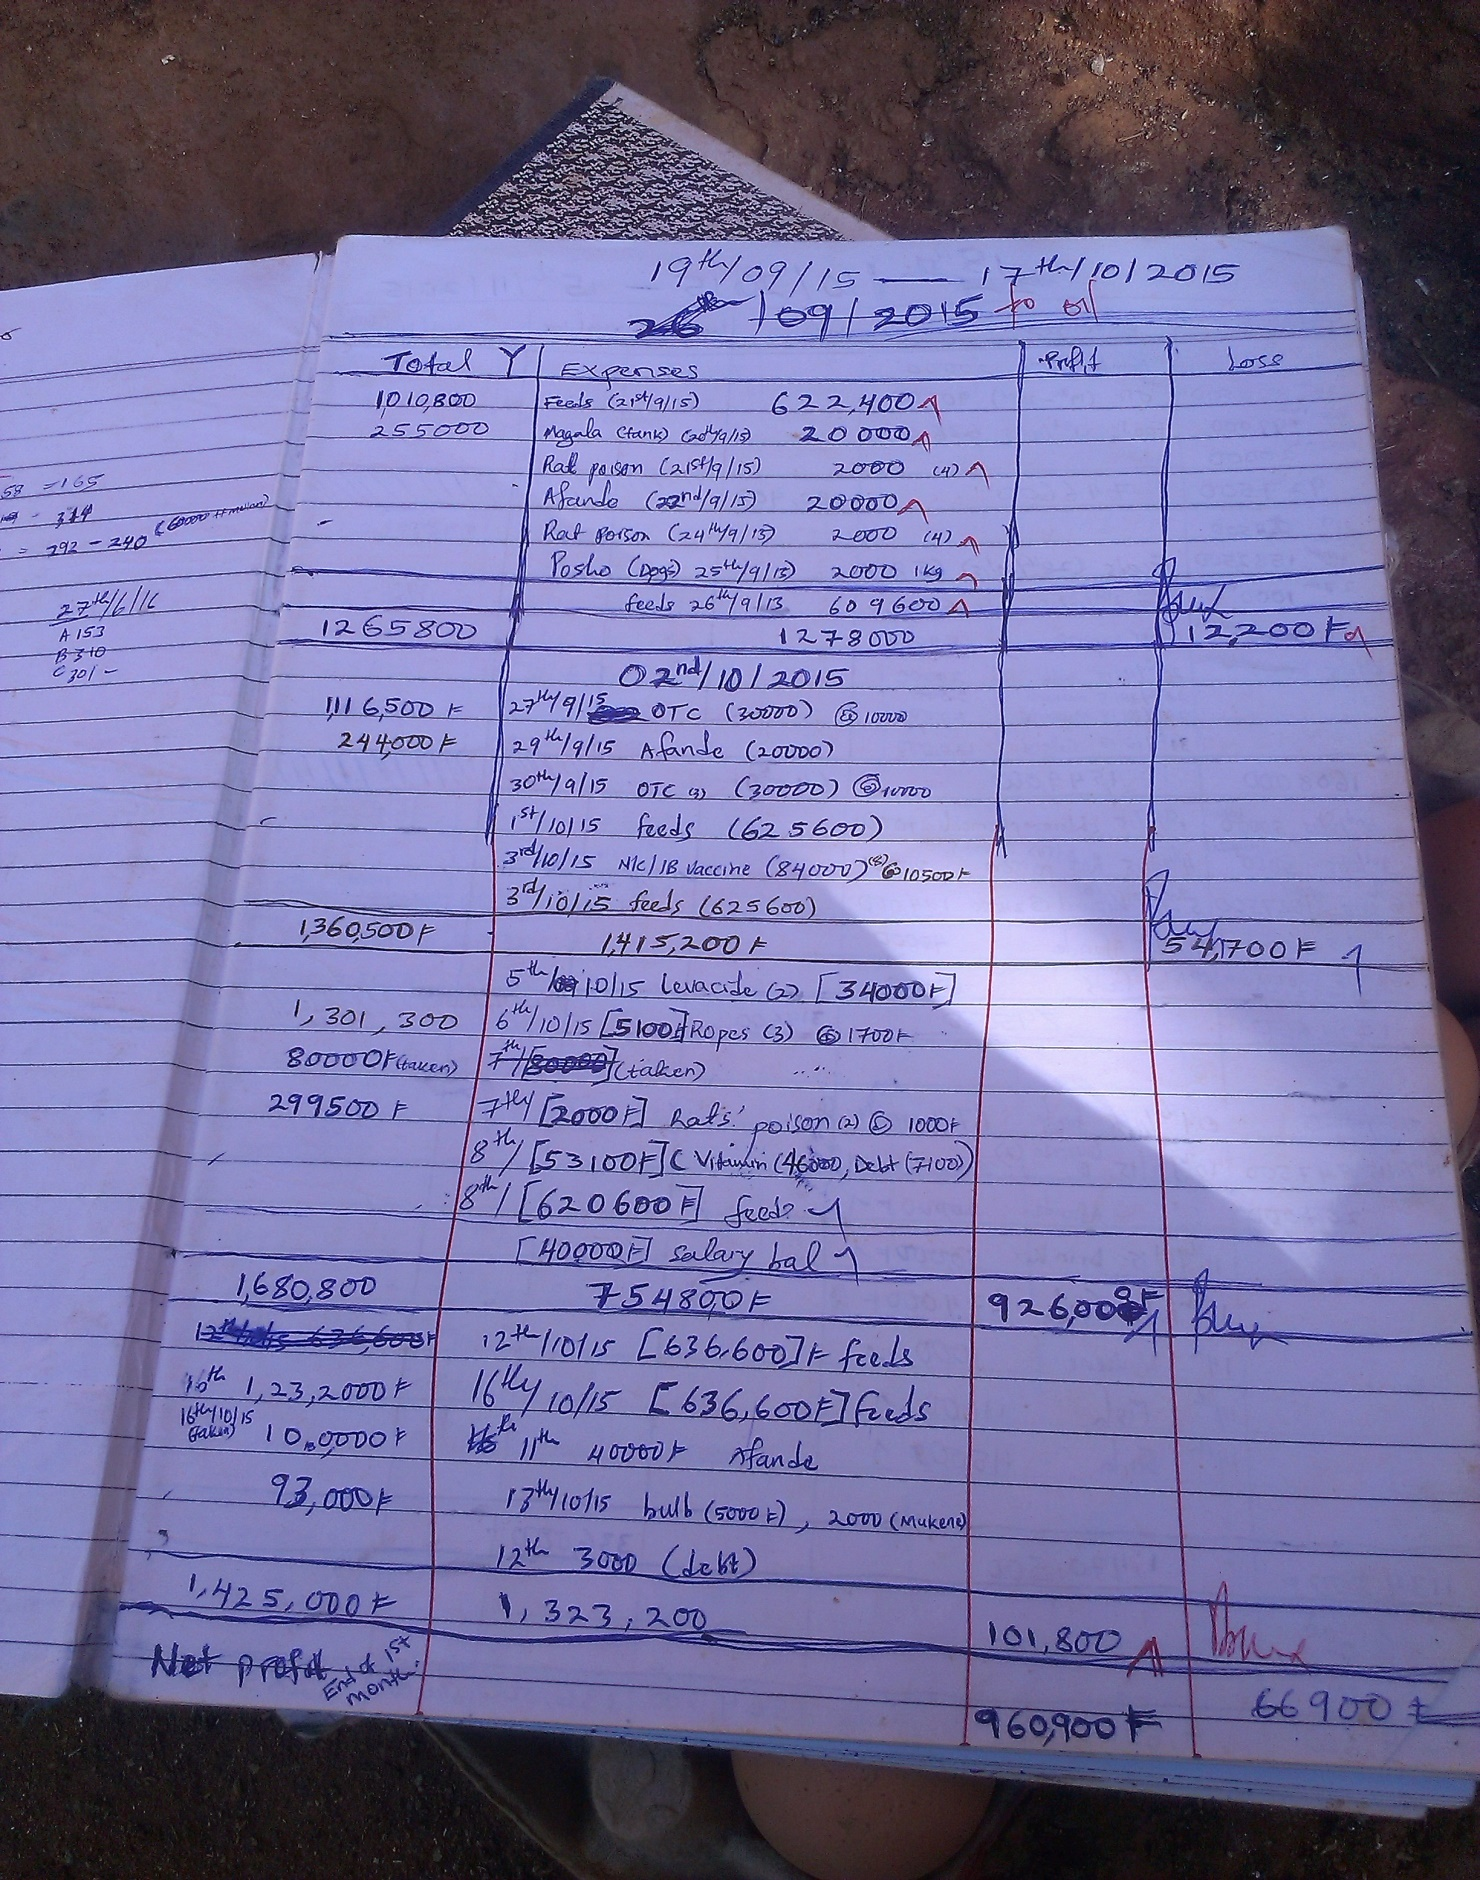 58 = 165
- 314
= 292 - 240
27th/6/16
A 153
B 310
C 301 -
19th/09/15 — 17th/10/2015
26th/09/2015 to
Total Y Expenses Profit Loss
1,010,800 Feeds (21st/9/15) 622,400
255000 Magala (tank) (20th/9/15) 20000
Rat poison (21st/9/15) 2000 (4)
Afande (22nd/9/15) 20000
Rat Poison (24th/9/15) 2000 (4)
Posho (Dogs) 25th/9/15) 2000 1kg
feeds 26th/9/13 609600
1265800 1278000 12,200F
02nd/10/2015
1,116,500 F 27th/9/15 OTC (30000) @ 10000
244,000F 29th/9/15 Afande (20000)
30th/9/15 OTC (3) (30000) @10000
1st/10/15 feeds (625600)
3rd/10/15 N/C/IB Vaccine (84000) (8) @10500F
3rd/10/15 feeds (625600)
1,360,500F 1,415,200F 54,700F
5th/10/15 Levacide (2) [34000F]
1,301,300 6th/10/15 [5100F] Ropes (3) @ 1700F
80000F (taken) 7th/[80000] (taken)
299500 F 7th/ [2000F] Rats' poison (2) @ 1000F
8th/ [53100F] C Vitamin (46000, Debt (7100)
8th/ [620600F] feeds
[40,000F] Salary bal
1,680,800 754800F 926,000F
12th/10/15 636,600F 12th/10/15 [636,600]F feeds
16th 1,23,2000F 16th/10/15 [636,600F] feeds
16th/10/15 (taken) 10,0000F 11th 40000F Afande
93,000F 13th/10/15 bulb (5000F), 2000 (Mukene)
12th 3000 (debt)
1,425,000F 1,323,200 101,800
Net profit End of 1st month. 66900F
960,900F